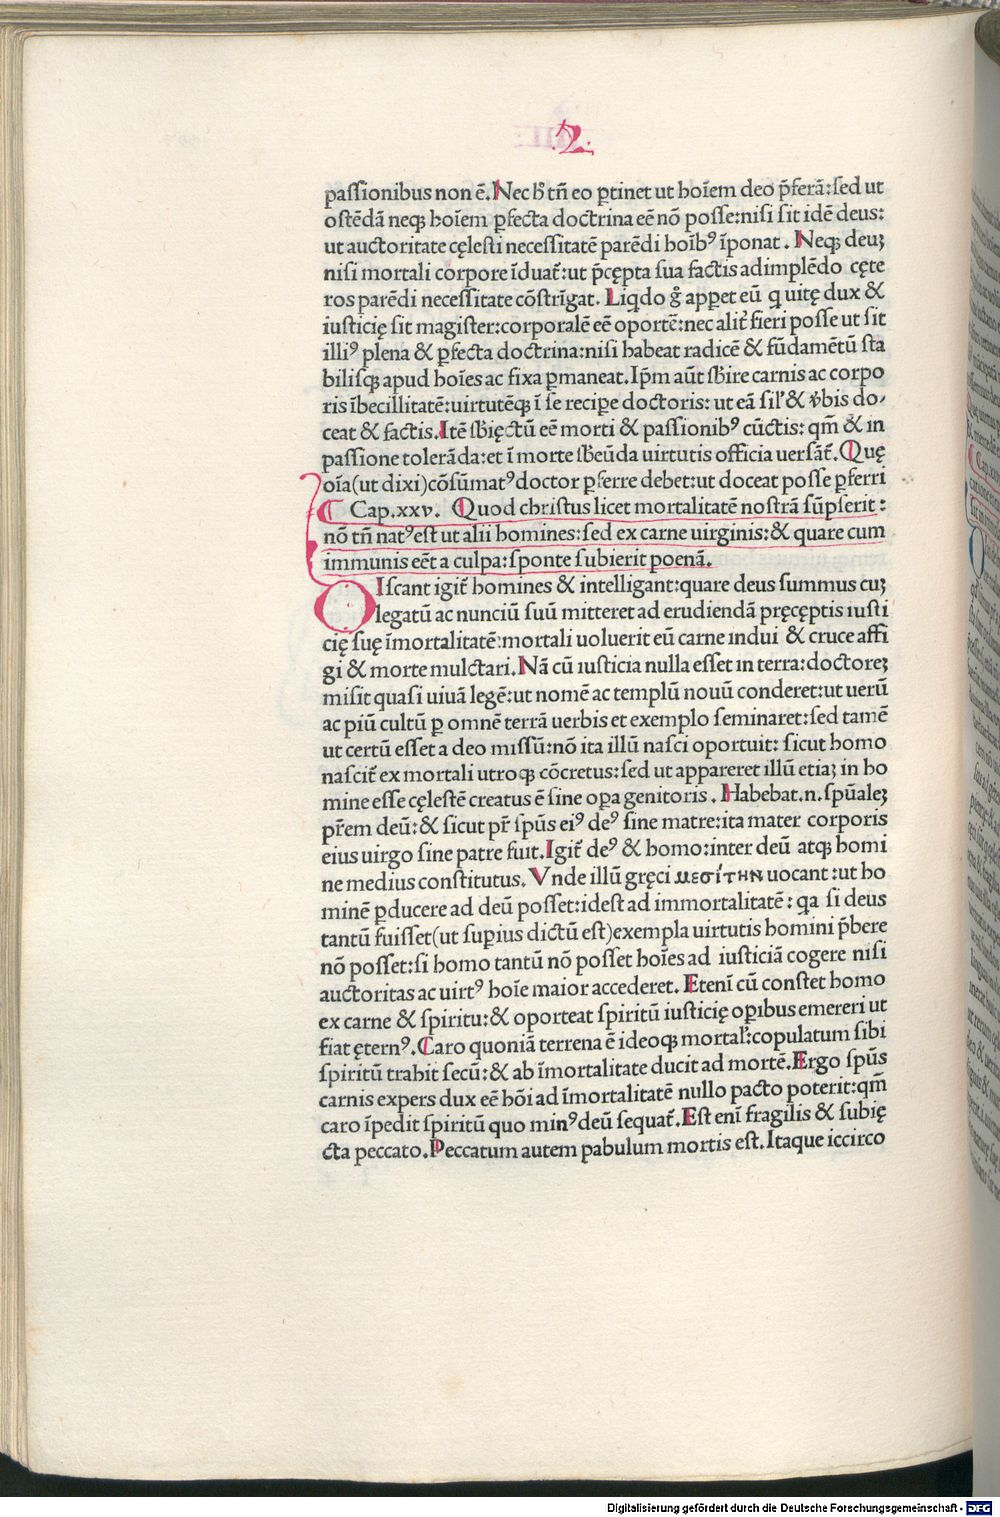 2.
paſſionibus non ē. Nec ħ tñ eo ꝑtinet ut hoīem deo p̄ferā: ſed ut
oſtēdā neqꝫ hoīem ꝑfecta doctrina eē nō poſſe: niſi ſit idē deus:
ut auctoritate cęleſti neceſſitatē parēdi hoībꝰ īponat. Neqꝫ deuꝫ
niſi mortali corpore īduat᷑: ut p̄cępta ſua factis adimplēdo cęte
ros parēdi neceſſitate cōſtrīgat. Liqdo g̊ appet eū q uitę dux &
iuſticię ſit magiſter: corporalē eē oportē: nec alit᷑ fieri poſſe ut ſit
illiꝰ plena & ꝑfecta doctrina: niſi habeat radicē & fūdamētū ſta
biliſqꝫ apud hoīes ac fixa ꝑmaneat. Ip̄m aūt ſbire carnis ac corpo
ris ībecillitatē: uirtutēqꝫ ī ſe recipe doctoris: ut eā ſil᷑ & v̄bis do-
ceat & factis. Itē ſbięctū eē morti & paſſionibꝰ cūctis: qm̄ & in
paſſione tolerāda: et ī morte ſbeūda uirtutis officia uerſāt᷑. Quę
oīa (ut dixi) cōſūmatꝰ doctor ꝑferre debet: ut doceat poſſe ꝑferri
¶ Cap. xxv. Quod chriſtus licet mortalitatē noſtrā ſūpſerit:
nō tñ natꝰ eſt ut alii homines: ſed ex carne uirginis: & quare cum
immunis eēt a culpa: ſponte ſubierit poenā.
DIſcant igit᷑ homines & intelligant: quare deus ſummus cuꝫ
legatū ac nunciū ſuū mitteret ad erudiendā pręcęptis iuſti
cię ſuę īmortalitatē: mortali uoluerit eū carne indui & cruce affi
gi & morte mulctari. Nā cū iuſticia nulla eſſet in terra: doctoreꝫ
miſit quaſi uiuā legē: ut nomē ac templū nouū conderet: ut uerū
ac piū cultū ꝑ omnē terrā uerbis et exemplo ſeminaret: ſed tamē
ut certū eſſet a deo miſſū: nō ita illū naſci oportuit: ſicut homo
naſcit᷑ ex mortali utroqꝫ cōcretus: ſed ut appareret illū etiaꝫ in ho
mine eſſe cęleſtē creatus ē ſine opa genitoris. Habebat .n. ſpūaleꝫ
pr̄em deū: & ſicut pr̄ ſpūs eiꝰ deꝰ ſine matre: ita mater corporis
eius uirgo ſine patre fuit. Igit᷑ deꝰ & homo: inter deū atqꝫ homi
ne medius conſtitutus. Vnde illū gręci μεσίτην uocant: ut ho
minē ꝑducere ad deū poſſet: ideſt ad immortalitatē: qa ſi deus
tantū fuiſſet (ut ſupius dictū eſt) exempla uirtutis homini p̄bere
nō poſſet: ſi homo tantū nō poſſet hoīes ad iuſticiā cogere niſi
auctoritas ac uirtꝰ hoīe maior accederet. Etenī cū conſtet homo
ex carne & ſpiritu: & oporteat ſpiritū iuſticię opibus emereri ut
fiat ęternꝰ. Caro quoniā terrena ē ideoqꝫ mortal᷑: copulatum ſibi
ſpiritū trahit ſecū: & ab īmortalitate ducit ad mortē. Ergo ſpūs
carnis expers dux eē hōi ad īmortalitatē nullo pacto poterit: qm̄
caro īpedit ſpiritū quo minꝰ deū ſequat᷑. Eſt enī fragilis & ſubię
cta peccato. Peccatum autem pabulum mortis eſt. Itaque iccirco
Digitalisierung gefördert durch die Deutsche Forschungsgemeinschaft - DFG